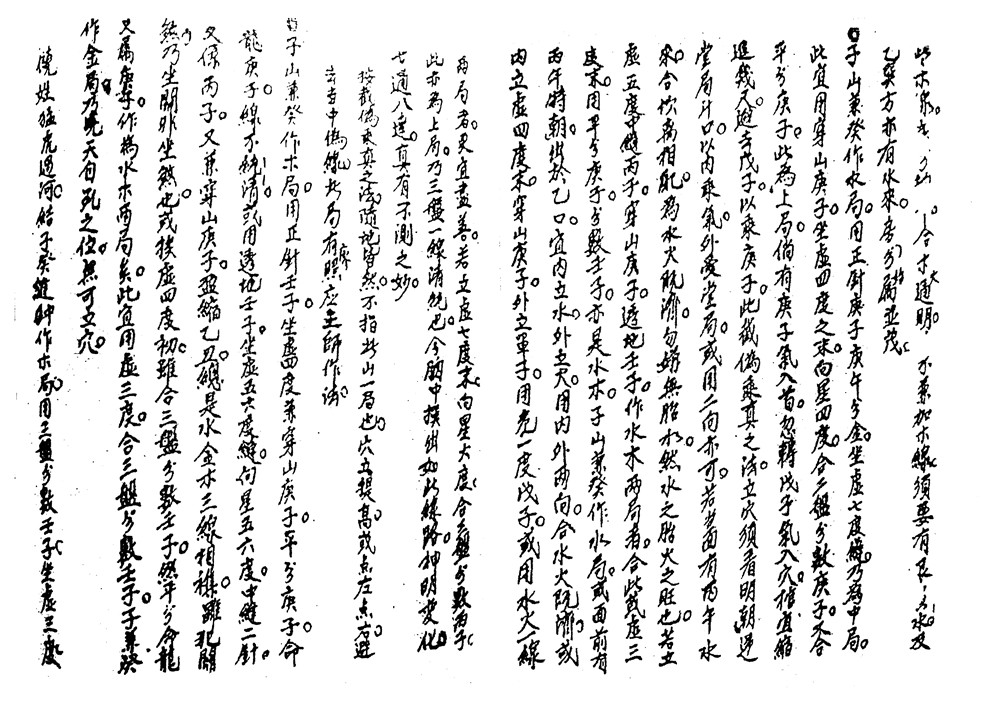 此木泉 合才通明 不兼加木線須要有艮 水及
乙巽方亦有水來 方 屬並茂
子山兼癸作水局用正針庚子庚午分金坐虛七度縫乃為中局
此宜用穿山庚子坐虛四度之末向星四度合二盤分數庚子不合
平分庚子此為上局倘有庚子氣入首忽轉戊子氣入穴棺宜縮
退幾尺避去戊子以乘庚子此截偽乘真之法立穴須看明朝迎
堂局斗口以內乘氣外受堂局或用二向亦可若当面有丙午水
來合坎离相配為水火既濟勿嫌無胎水然水之胎火之旺也若立
虛五度中縫丙子穿山庚子透地壬子作水木兩局者合此或虛三
度末用平分庚子分數壬子亦是水木子山兼癸作水局或面前有
丙午特朝出於乙口宜內立水外立火用內外兩向合水火既濟或
內立虛四度末穿山庚子外立單子用危一度戊子或用水火一線
兩局者更宜盡善若立虛七度末向星六度合三盤分數丙子
此亦為上局乃三盤一線清純也今胸中撰出如此線路神明變化
七通八達真有不測之妙
按截偽乘真之法隨地皆然不指此山一局也穴立提高或点左点右避
去者中偽線此局有 應主師作法
子山兼癸作木局用正針壬子坐虛四度兼穿山庚子平分庚子命
龍庚子線不純清或用透地壬子坐虛五六度縫向星五六度中縫二針
又係丙子又兼穿山庚子盈縮乙丑總是水金木三線相襍雖犯關
煞乃坐關非坐煞也或挨虛四度初雖合三盤分數壬子然平分命龍
又屬庚子作為水木兩局矣此宜用虛三度合三盤分數壬子子兼癸
作金局乃先天自死之位無可立穴
僥姓猛虎過河格子癸縫針作木局用三盤分數壬子坐虛三度